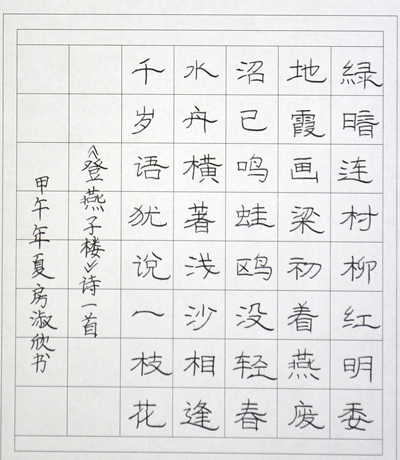 緑暗连村柳红明委
地霞画梁初着燕废
沼已鸣蛙鸥没轻春
水舟横著浅沙相逢
千岁语犹说一枝花
《登燕子楼》诗一首
甲午年夏房淑欣书